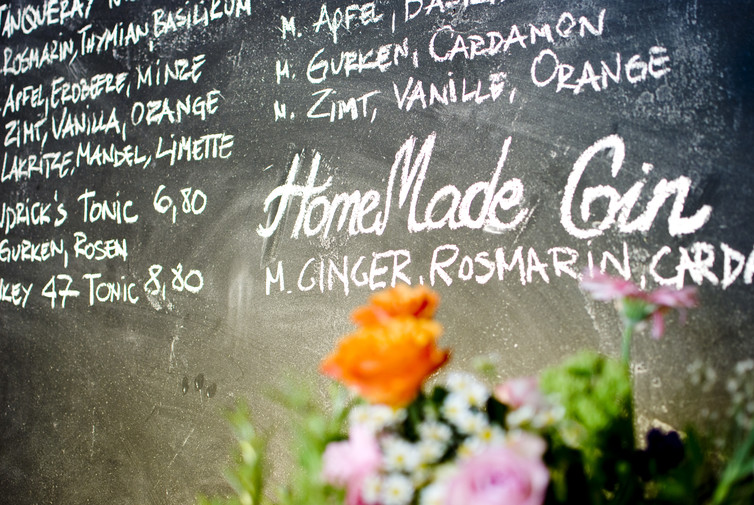 TANQUERAY
ROSMARIN, THYMIAN, BASILIKUM
APFEL, ERDBEERE, MINZE
ZIMT, VANILLA, ORANGE
LAKRITZE, MANDEL, LIMETTE
NDRICK'S TONIC 6,80
GURKEN, ROSEN
KEY 47 TONIC 8,80
M. APFEL,
M. GURKEN, CARDAMON
M. ZIMT, VANILLE, ORANGE
HomeMade Gin
M. GINGER, ROSMARIN, CARDA